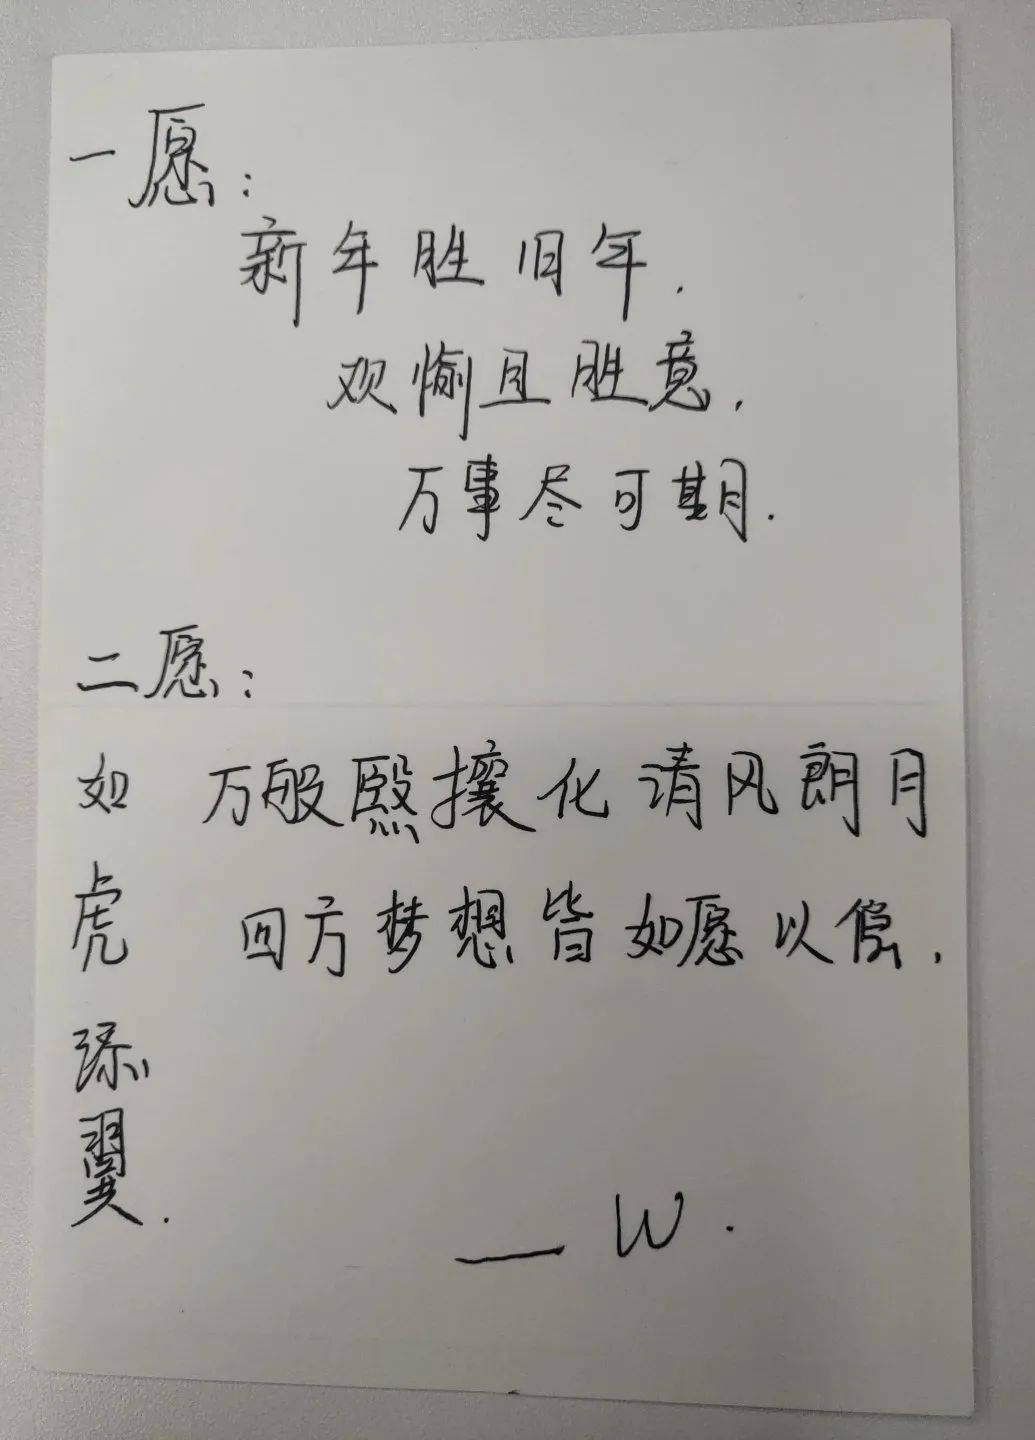 一愿:
新年胜旧年.
欢愉且胜意.
万事尽可期.
二愿:
万般熙攘化清风朗月
四方梦想皆如愿以偿.
如虎添翼.
— W.